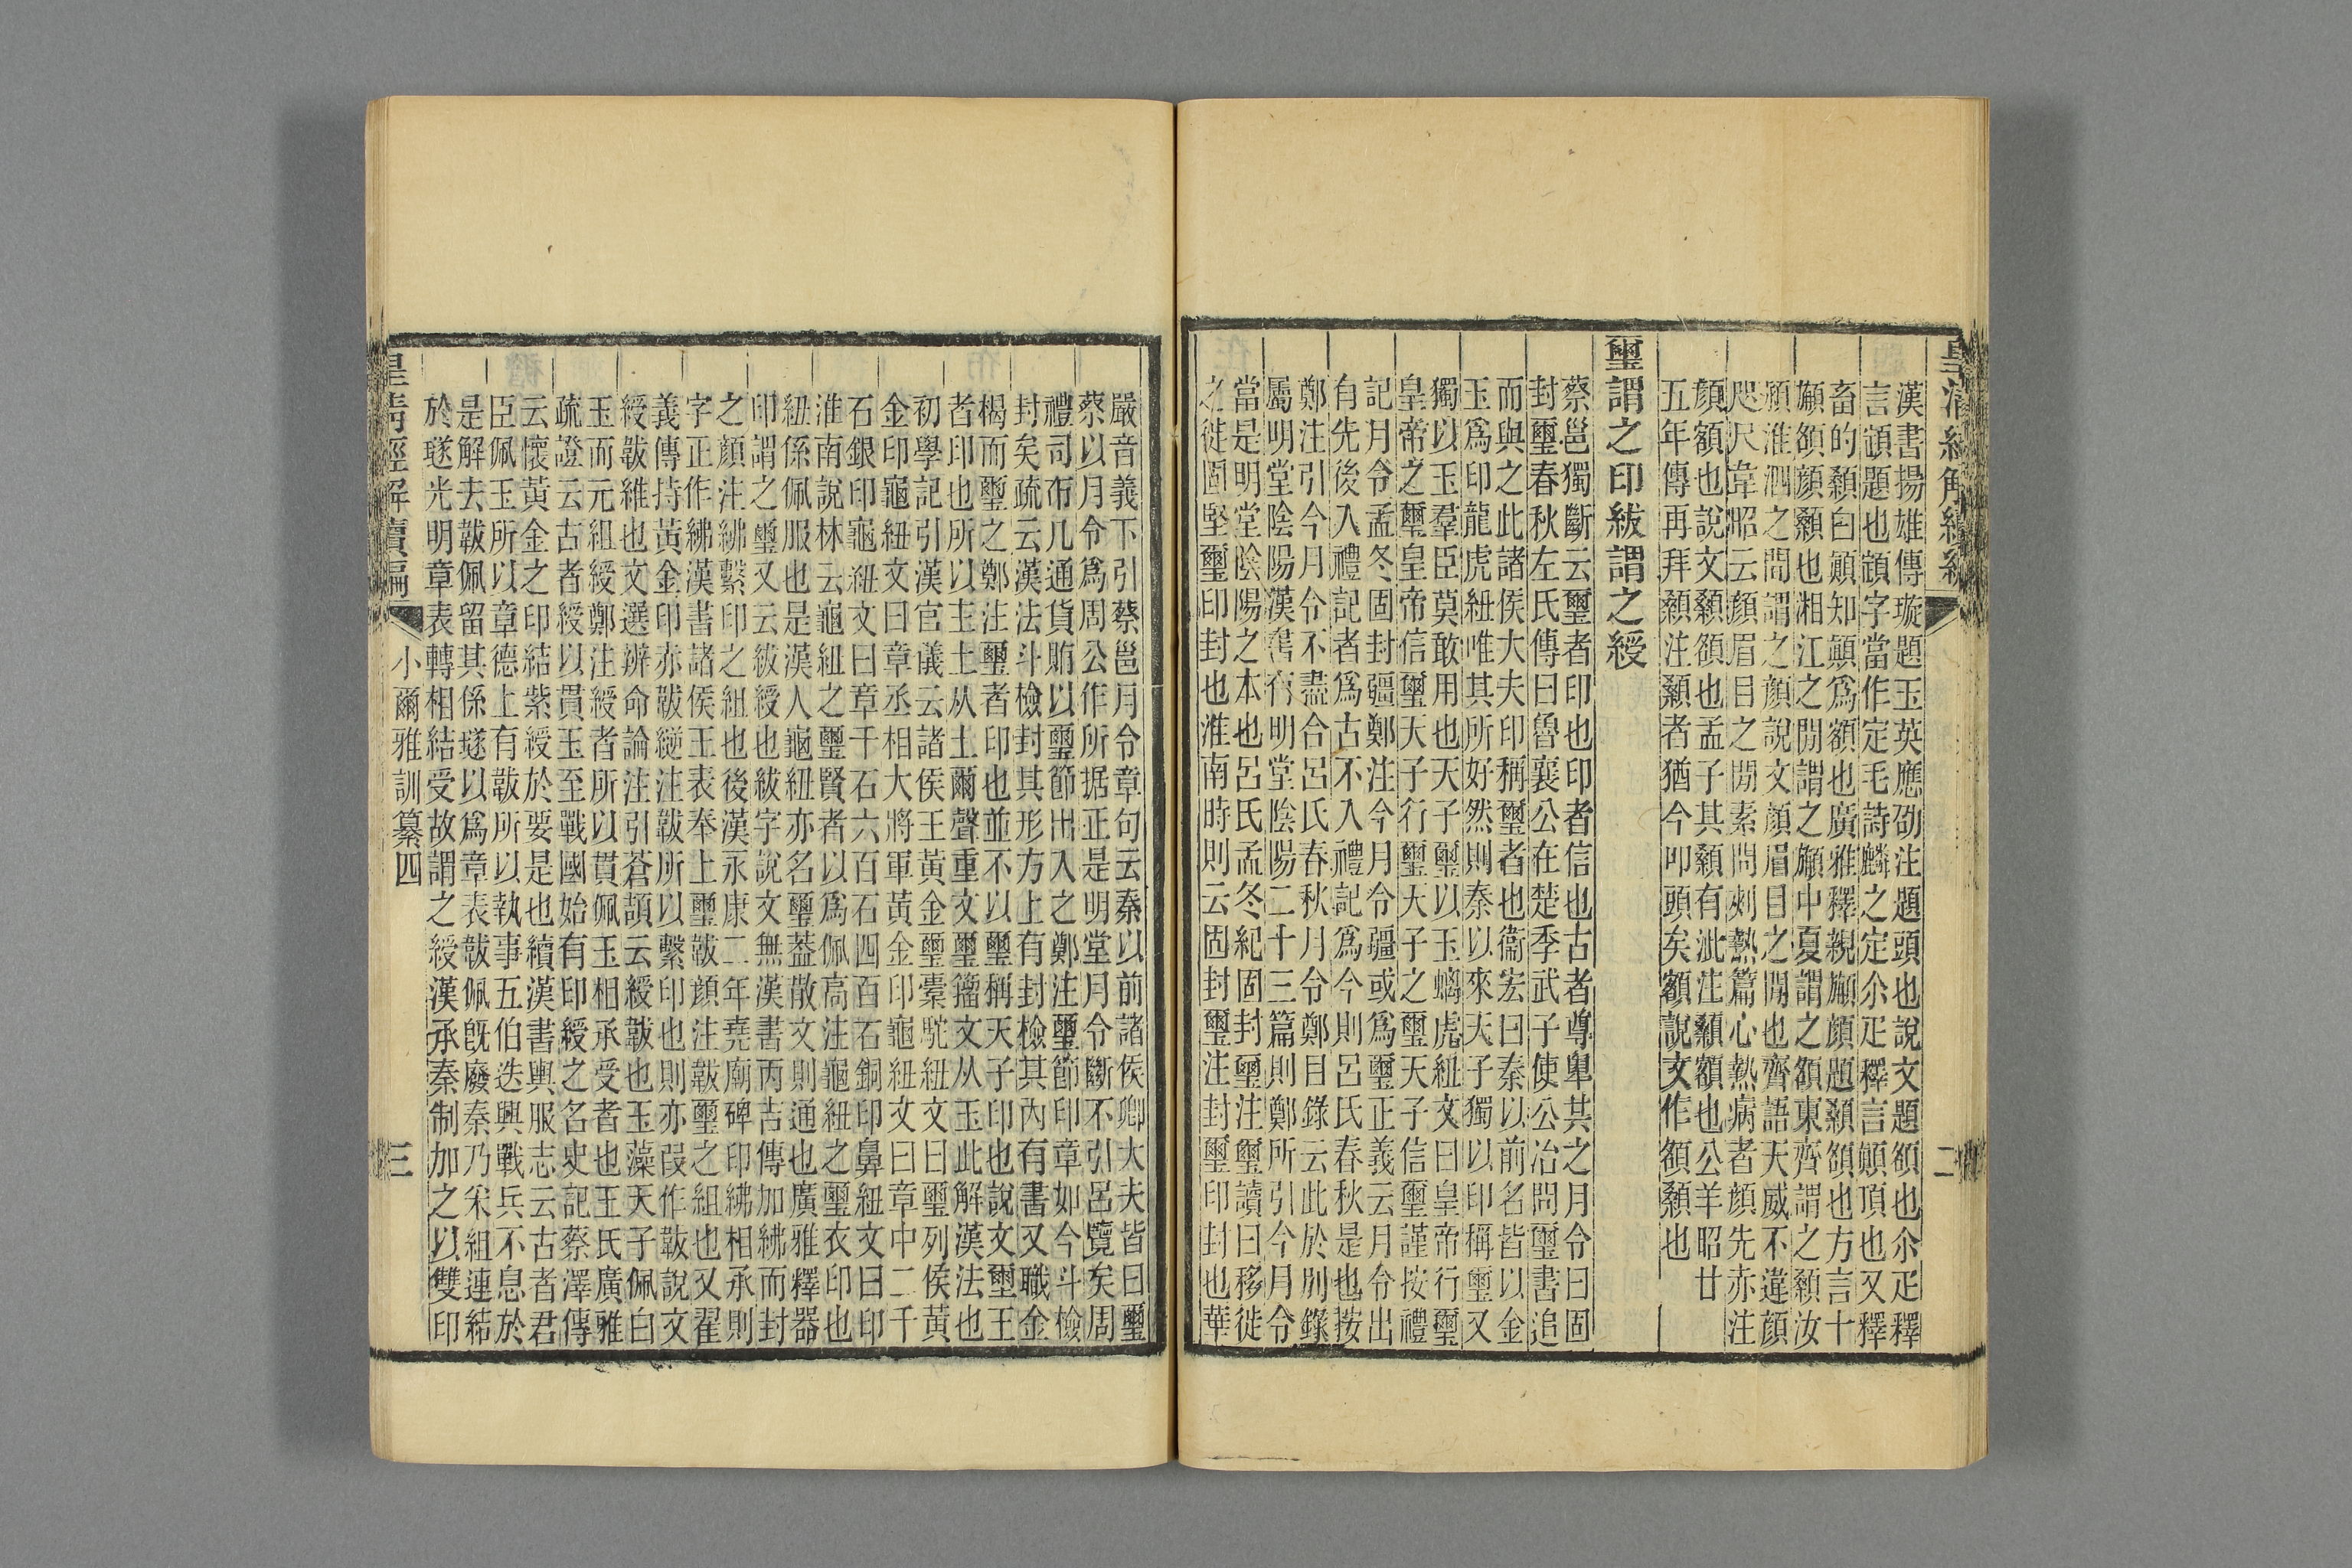 漢書揚雄傳璇題玉英應劭注題頭也說文題頟也尒疋釋
言顁題也顁字當作定毛詩麟之定尒疋釋言顚頂也又釋
畜的顙白顚知顚爲額也廣雅釋親䫜顏題顙頟也方言十
䫜頟顏顙也湘江之閒謂之䫜中夏謂之頟東齊謂之顙汝
潁淮泗之閒謂之顏說文顏眉目之閒也齊語天威不違顏
咫尺韋昭云顏眉目之閒素問刺熱篇心熱病者顏先赤注
顏額也說文顙頟也孟子其顙有泚注顙額也公羊昭廿
五年傳再拜顙注顙者猶今叩頭矣額說文作頟顙也
璽謂之印紱謂之綬
蔡邕獨斷云璽者印也印者信也古者尊卑其之月令曰固
封璽春秋左氏傳曰魯襄公在楚季武子使公冶問璽書追
而與之此諸侯大夫印稱璽者也衞宏曰秦以前名皆以金
玉爲印龍虎紐唯其所好然則秦以來天子獨以印稱璽又
獨以玉羣臣莫敢用也天子璽以玉螭虎紐文曰皇帝行璽
皇帝之璽皇帝信璽天子行璽天子之璽天子信璽謹按禮
記月令孟冬固封疆鄭注今月令疆或爲璽正義云月令出
有先後入禮記者爲古不入禮記爲今則呂氏春秋是也按
鄭注引今月令不盡合呂氏春秋月令鄭目錄云此於別錄
屬明堂陰陽漢書有明堂陰陽二十三篇則鄭所引今月令
當是明堂陰陽之本也呂氏孟冬紀固封璽注璽讀曰移徙
之徙固堅璽印封也淮南時則云固封璽注封璽印封也華
嚴音義下引蔡邕月令章句云秦以前諸侯卿大夫皆曰璽
蔡以月令爲周公作所据正是明堂月令斷不引呂覽矣周
禮司市凡通貨賄以璽節出入之鄭注璽節印章如今斗檢
封矣疏云漢法斗檢封其形方上有封檢其內有書又職金
楬而璽之鄭注璽者印也並不以璽稱天子印也說文璽王
者印也所以主土从土爾聲重文璽籒文从玉此解漢法也
初學記引漢官儀云諸侯王黃金璽橐駝紐文曰璽列侯黃
金印龜紐文曰章丞相大將軍黃金印龜紐文曰章中二千
石銀印龜紐文曰章千石六百石四百石銅印鼻紐文曰印
淮南說林云龜紐之璽賢者以爲佩高注龜紐之璽衣印也
紐係佩服也是漢人龜紐亦名璽葢散文則通也廣雅釋器
印謂之璽又云紱綬也紱字說文無漢書丙吉傳加紼而封
之顏注紼繫印之組也後漢永康二年堯廟碑印紼相承則
字正作紼漢書諸侯王表奉上璽韍顏注韍璽之組也又翟
義傳持黃金印亦韍縌注韍所以繫印也則亦叚作韍說文
綬韍維也文選辨命論注引蒼頡云綬韍也玉藻天子佩白
玉而元組綬鄭注綬者所以貫佩玉相承受者也王氏廣雅
疏證云古者綬以貫玉至戰國始有印綬之名史記蔡澤傳
云懷黃金之印結紫綬於要是也續漢書輿服志云古者君
臣佩玉所以章德上有韍所以執事五伯迭興戰兵不息於
是解去韍佩留其係璲以爲章表韍佩旣廢秦乃宷組連結
於璲光明章表轉相結受故謂之綬漢承秦制加之以雙印
皇淸經解賣編
小爾雅訓纂四
三